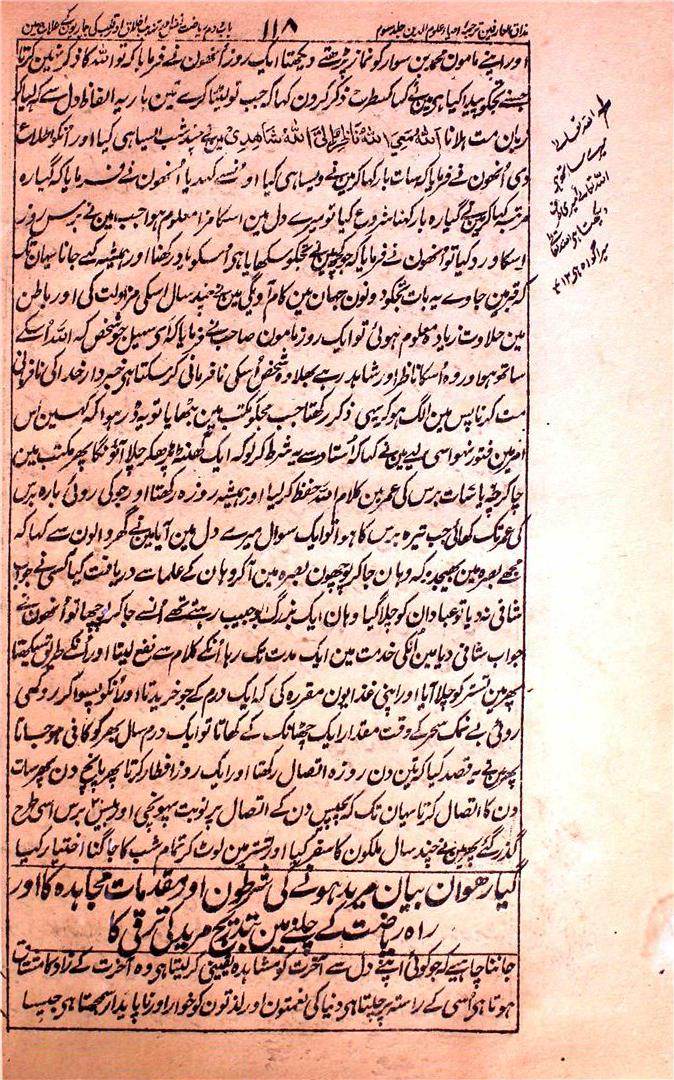 مذاق العارفین ترجمہ احیاء علوم الدین جلد سوم
۱۱۸
باب دوم ریاضت نفس اور تہذیب اخلاق اور قلب کی بیماریوں کے علاج میں
اور اپنے مامون محمد بن سوار کو نماز پڑھتے دیکھتا ایک روز اُنھون نے فرمایا کہ تو اللہ کا ذکر نہین کرتا
جسنے تجکو پیدا کیا ہی مین نے کہا کسطرح ذکر کرون کہا کہ جب تو لیٹا کرے تین بار یہ الفاظ دل سے کہہ لیا کر
زبان مت ہلانا اَللّٰهُ مَعِيَ اَللّٰهُ نَاظِرٌ اِلَيَّ اَللّٰهُ شَاهِدِيْ مین نے چند شب ایسا ہی کیا اور اُنکو اطلاع
دی اُنھون نے فرمایا کہ سات بار کہا کر مین نے ویسا ہی کیا اور اُنسے کہدیا اُنھون نے فرمایا کہ گیارہ
مرتبہ کہا کر مین نے گیارہ بار کہنا شروع کیا تو میرے دل مین اسکا مزا معلوم ہوا جب مین نے برس روز
اسکا ورد کیا تو اُنھون نے فرمایا کہ جو کچھ مین نے تجکو سکھایا ہی اُسکو یاد رکھنا اور ہمیشہ کیے جانا یہان تک
کہ قبر مین جاوے یہ بات تجکو دونون جہان مین کام آویگی مین نے چند سال اسکی مزاولت کی اور باطن
مین حلاوت زیادہ معلوم ہوئی تو ایک روز مامون صاحب نے فرمایا کہ ای سہیل جو شخص کہ اللہ اُسکے
ساتھ ہو اور وہ اُسکا ناظر اور شاہد رہے بھلا وہ شخص اُسکی نافرمانی کر سکتا ہی خبردار خدا کی نافرمانی
مت کرنا پس مین الگ ہو کر یہی ذکر رکھتا جب مجکو مکتب مین بٹھایا تو یہ ڈر ہوا کہ کہین اس
امر مین فتور نہو اسی لیے مین نے کہا کہ اُستاد سے یہ شرط کر لو کہ ایک گھنٹہ پڑھکر چلا آؤنگا پھر مکتب مین
جا کر چھہ یا سات برس کی عمر مین کلام اللہ حفظ کر لیا اور ہمیشہ روزہ رکھتا اور جو کی روٹی بارہ برس
کی عمر تک کھائی جب تیرہ برس کا ہوا تو ایک سوال میرے دل مین آیا مین نے گھر والون سے کہا کہ
مجھے بصرہ مین بھیجدو کہ وہان جا کر پوچھون بصرہ مین آ کر وہان کے علما سے دریافت کیا کسی نے جواب
شافی ندیا تو عبادان کو چلا گیا وہان ایک بزرگ ابو حبیب رہتے تھے اُنسے جا کر پوچھا تو اُنھون نے
جواب شافی دیا مین اُنکی خدمت مین ایک مدت تک رہا اُنکے کلام سے نفع لیتا اور اُنکے طریق سیکھتا
پھر مین تستر کو چلا آیا اور اپنی غذا یون مقرر کی کہ ایک درم کے جو خریدتا اور اُنکو پسوا کر روکھی
روٹی بے نمک سحر کے وقت مقدار ایک چھٹانک کے کھاتا تو ایک درم سال بھر کو کافی ہو جاتا
پھر مین نے یہ قصد کیا کہ تین دن روزہ اتصال رکھتا اور ایک روز افطار کرتا پھر پانچ دن پھر سات
دن کا اتصال کرتا یہان تک کہ پچیس دن کے اتصال پر نوبت پہونچی اور بیس برس اسی طرح
گذر گئے پھر مین نے چند سال ملکون کا سفر کیا اور تستر مین لوٹ کر تمام شب کا جاگنا اختیار کیا
گیارھوان بیان مرید ہونے کی شرطون اور مقدمات مجاہدہ کا اور
راہ ریاضت کے چلنے مین بتدریج مرید کی ترقی کا
جاننا چاہیے کہ جو کوئی اپنے دل سے آخرت کو مشاہدہ یقینی کر لیتا ہی وہ آخرت کے زاد کا مشتاق
ہوتا ہی اُسی کے راستہ پر چلتا ہی دنیا کی نعمتون اور لذتون کو خوار اور ناپایدار سمجھتا ہی جیسا
اللہ تعالے
میرے ساتھ ہی
اللہ تعالے میری طرف
دیکھتا ہی اللہ تعالے
میرا گواہ ہی ۱۲